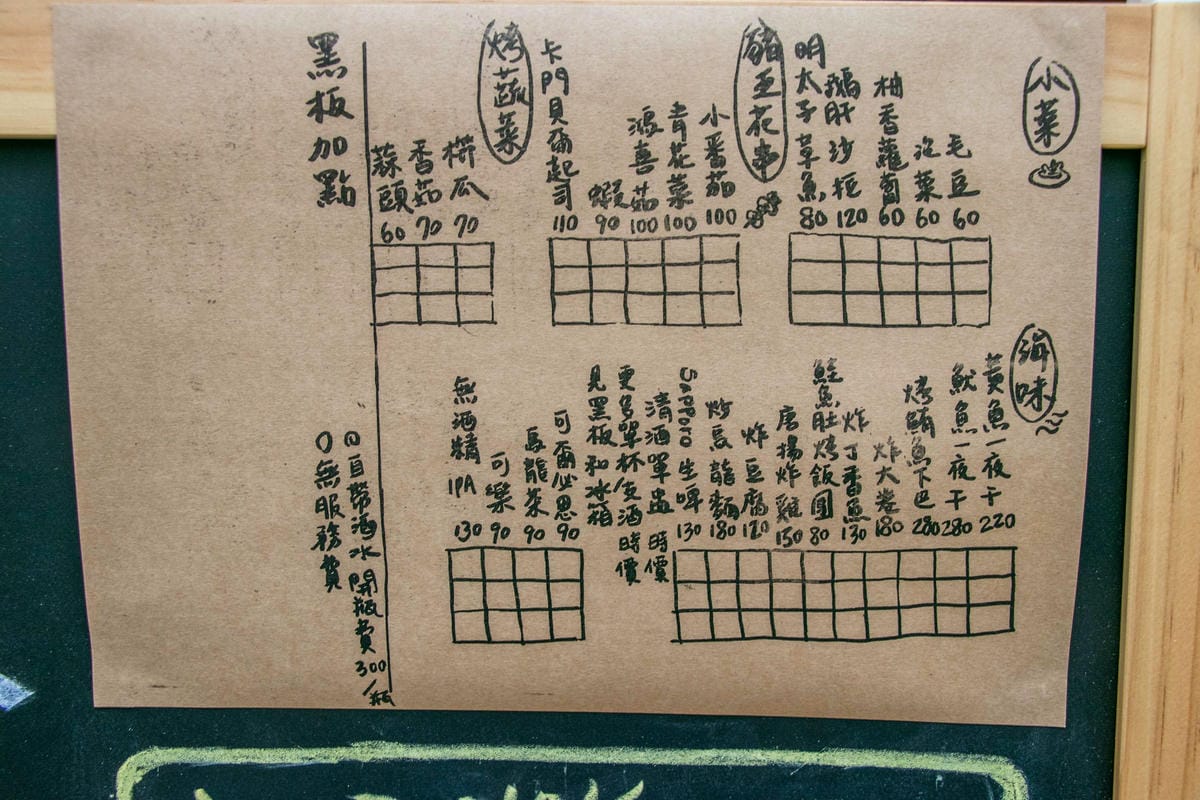 小菜
毛豆 60
泡菜 60
柚香蘿蔔 60
鵝肝沙拒 120
明太子草魚 80
豬五花串
小番茄 100
青花菜 100
鴻喜菇 100
蝦 90
卡門貝爾起司 110
烤蔬菜
櫛瓜 70
香菇 70
蒜頭 60
海味
黃魚一夜干 220
魷魚一夜干 280
烤鮪魚下巴 280
炸大卷 180
炸丁香魚 130
鮭魚肚烤飯團 80
唐揚炸雞 150
炸豆腐 120
炒烏龍麵 180
Sapporo 生啤 130
清酒單盅 時價
更多單杯/支酒 時價
見黑板和冰箱
可爾必思 90
烏龍茶 90
可樂 90
無酒精 IPA 130
黑板加點
自帶酒水開瓶費 300/瓶
無服務費